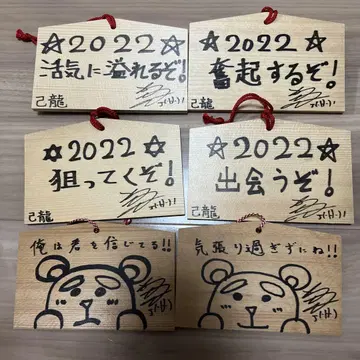 ☆2022☆
活気に溢れるぞ!
己龍
☆2022☆
奮起するぞ!
己龍
☆2022☆
狙ってくぞ!
己龍
☆2022☆
出会うぞ!
己龍
俺は君を信じてる!!
気張り過ぎずにね!!